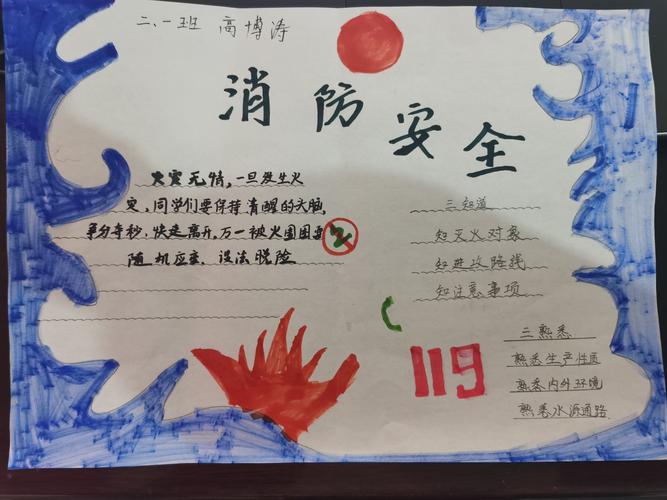 二、一班 高博涛
消防安全
火灾无情，一旦发生火
灾，同学们要保持清醒的头脑，
争分夺秒，快速离开，万一被火围困要
随机应变，设法脱险
三知道
知灭火对象
知进攻路线
知注意事项
119
三熟悉
熟悉生产性质
熟悉内外环境
熟悉水源通路